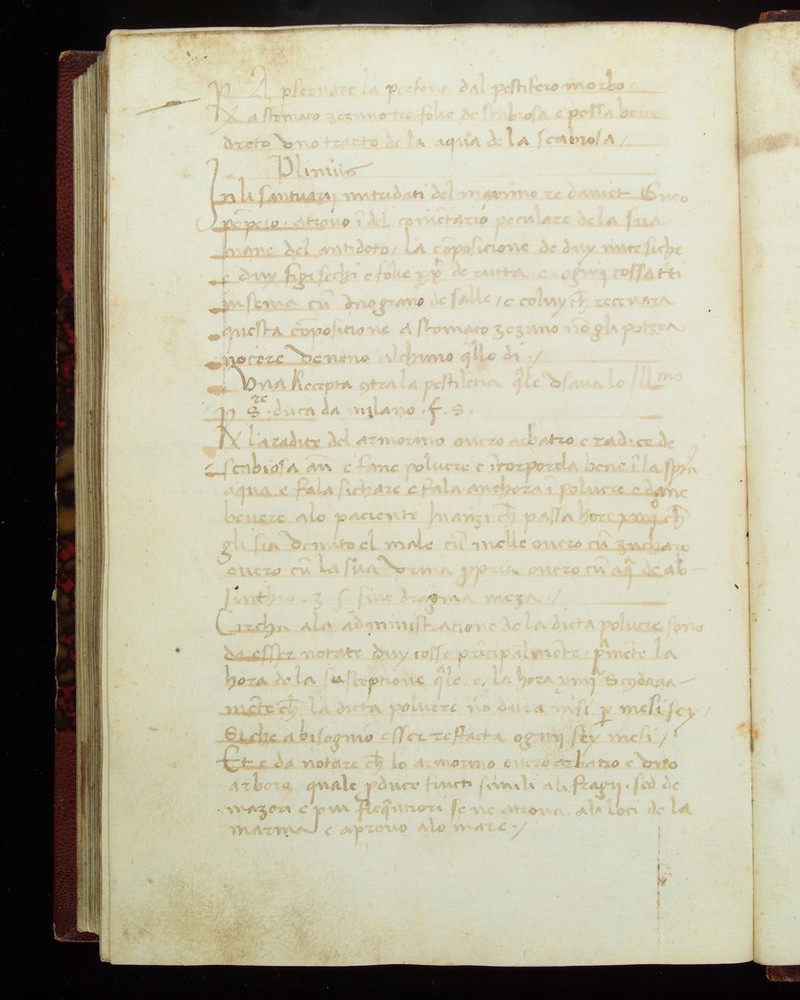 P A pseruare la persona dal pestifero morbo /
℞ a stomaco zezuno tre folie de scabiosa e possa bene
dreto vno tracto de la aqua de la scabiosa /
Plinius
In li santuarij mitridati del maximo re deuict Gneo
põpeio atrouo ĩ del comẽtario peculare de la sua
mane del antidoto / la cõposicione de duy nuce siche
e duy figi sechi e folie xx de rutta e ogniij cossa tti
insema cũ vno grano de salle / e coluy ch̃ receuara
questa cõposicione a stomaco zezuno nõ gli potera
nocere veneno alchuno q̃llo di ./
Vna Recepta 9tra la pestilẽtia q̃le vsaua lo Ill^mo
P S^re. duca da milano . f. s.
℞ la radice del armorino ouero arbatro e radice de
scabiosa añ e fane poluere e ĩcorporela bene ĩ la sp̃a
aqua e fala sichare e fala anchora ĩ poluere e dane
beuere alo paciente Inanzi ch̃ passa hore xviij ch̃
gli sia venuto el male cũ melle ouero cũ zucharo
ouero cũ la sua vrina p̱pria ouero cũ aq̃ de ab-
sinthio . ʒ . s̃ . siue dragma meza ./
Circha ala ãdministracione de la dicta poluere sono
da esser notate duy cosse pñcipalmẽte / p̃mẽte la
hora de la susceptione q̃le e la hora xviij Secõdaria-
mẽte ch̃ la dicta poluere nõ dura nisi p̱ mesi sey /
Siche a bisognio esser reffacta ogniij sey mesi /
Et e da notare ch̃ lo armorino ouero arbatro e vno
arbore quale p̱duce fructi simili ali fragij . sed de
mazori e piu freq̃ntiori se ne atroua ali loci de la
marina e aprouo alo mare ./